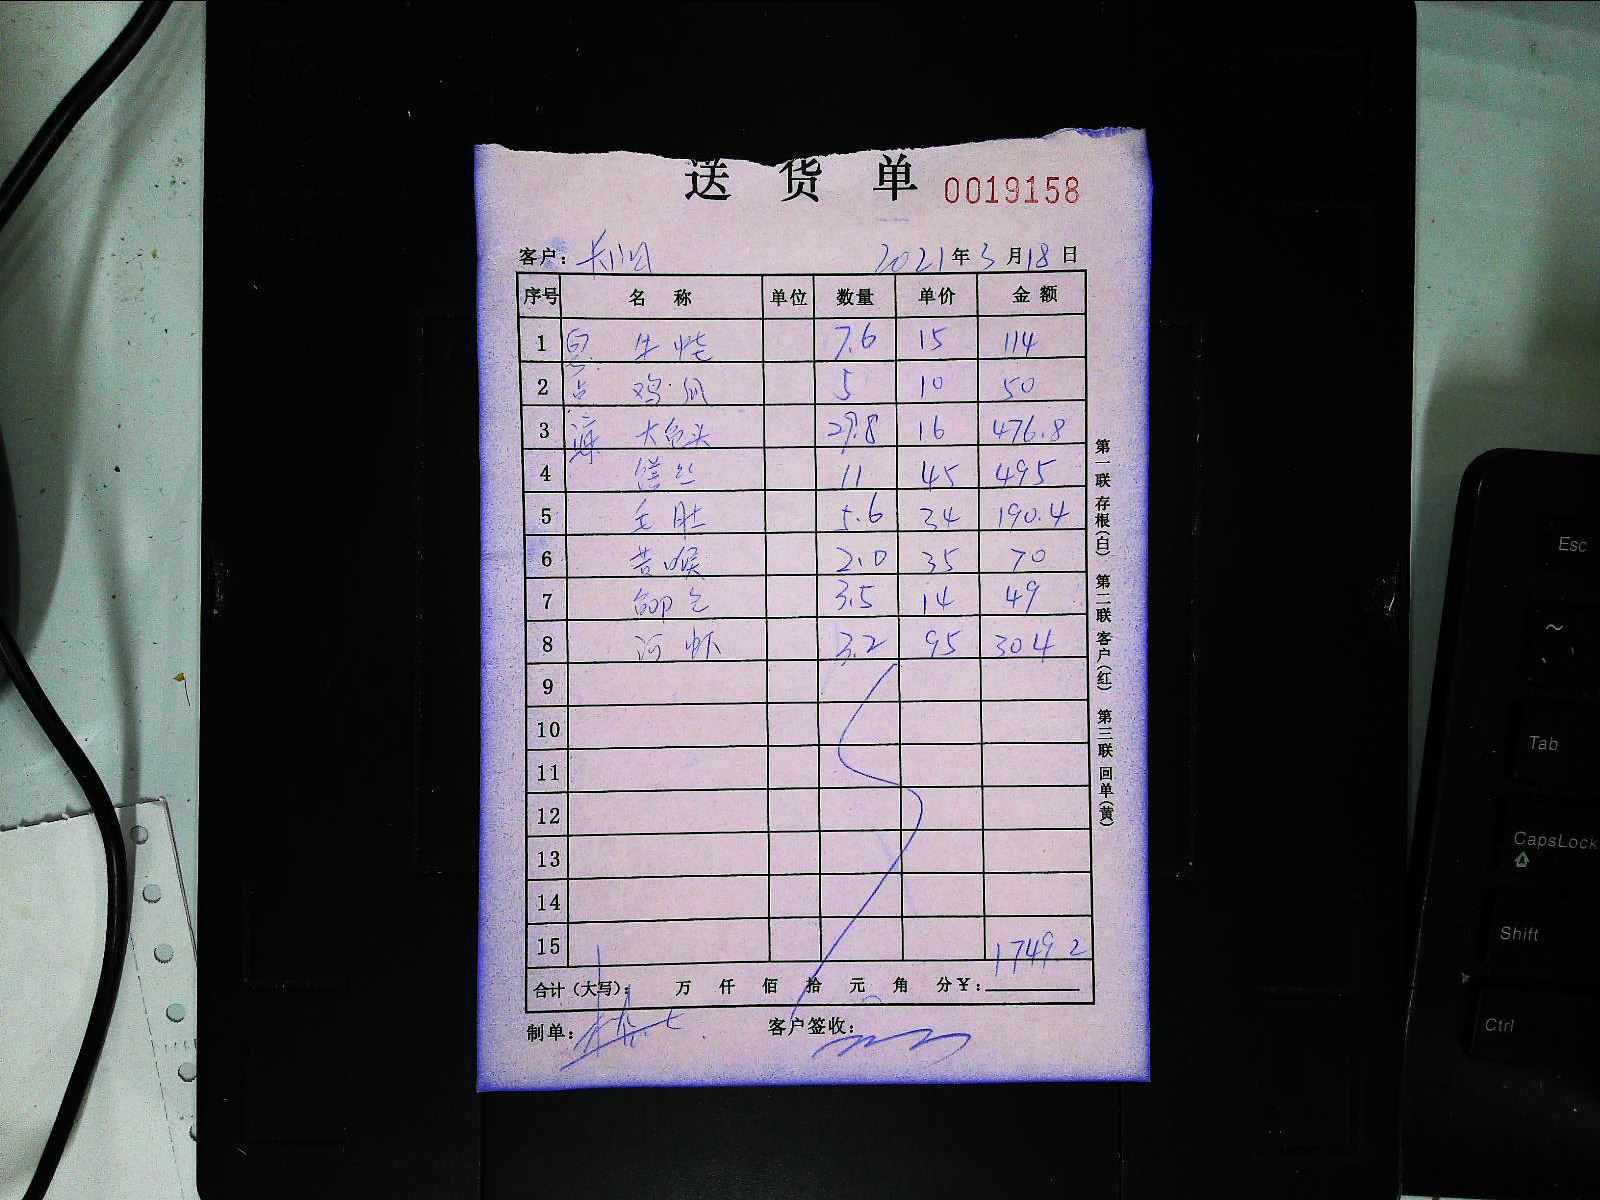 送 货 单 0019158
客户： 2021年3月18日
序号 名 称 单位 数量 单价 金额
1 牛 7.6 15 114
2 鸡爪 5 10 50
3 大鱼头 29.8 16 476.8
4 丝 11 45 495
5 毛肚 5.6 34 190.4
6 黄喉 2.0 35 70
7 3.5 14 49
8 河虾 3.2 95 304
9
10
11
12
13
14
15 1749.2
合计（大写）： 万 仟 佰 拾 元 角 分￥：
制单： 客户签收：
第一联 存根（白） 第二联 客户（红） 第三联 回单（黄）
Esc
~
Tab
CapsLock
Shift
Ctrl